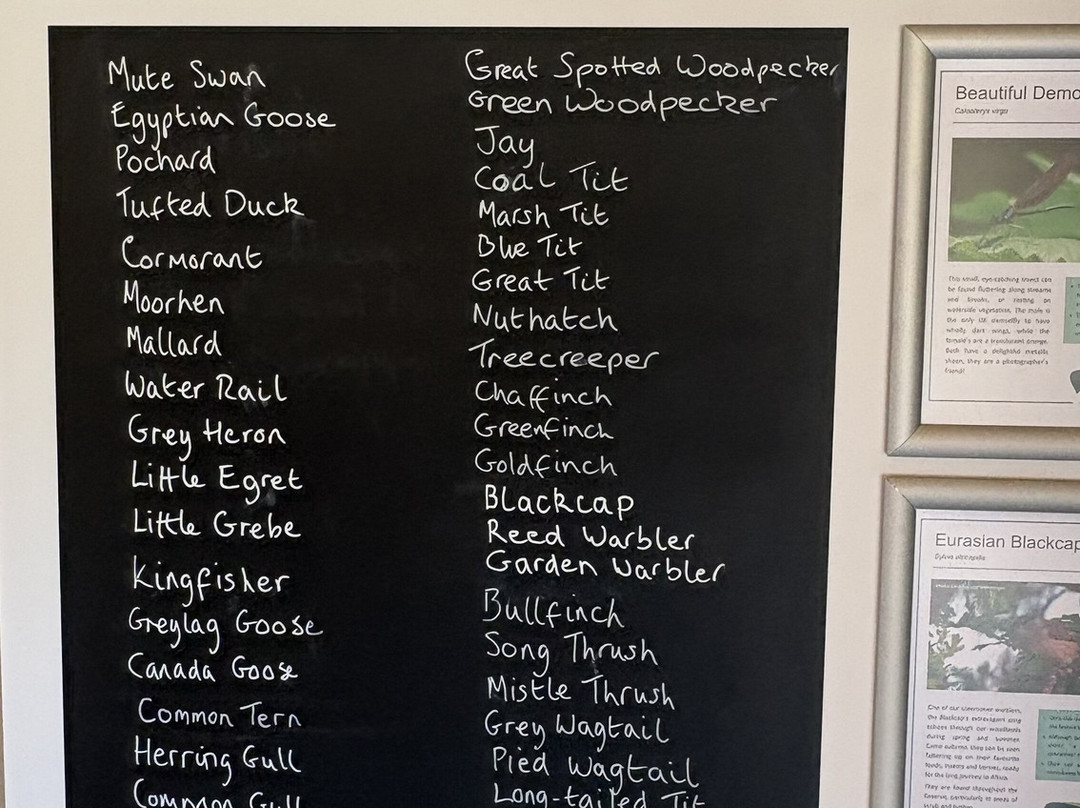 Mute Swan
Egyptian Goose
Pochard
Tufted Duck
Cormorant
Moorhen
Mallard
Water Rail
Grey Heron
Little Egret
Little Grebe
Kingfisher
Greylag Goose
Canada Goose
Common Tern
Herring Gull
Common Gull
Great Spotted Woodpecker
Green Woodpecker
Jay
Coal Tit
Marsh Tit
Blue Tit
Great Tit
Nuthatch
Treecreeper
Chaffinch
Greenfinch
Goldfinch
Blackcap
Reed Warbler
Garden Warbler
Bullfinch
Song Thrush
Mistle Thrush
Grey Wagtail
Pied Wagtail
Long-tailed Tit
Beautiful Demo
Calopteryx virgo
This small, eye-catching insect can
be found fluttering along streams
and brooks, or resting on
waterside vegetation. The male is
the only UK damselfly to have
wholly dark wings, while the
female's are a translucent orange.
Both have a delightful metallic
sheen, they are a photographer's
friend!
Eurasian Blackcap
One of our
the Blackcap's extravagant song
echoes through our woodlands
during spring and summer.
Come autumn, they can be seen
on their favourite
and berries, ready
for the long journey to Africa.
They are found throughout the
Reserve, particularly in areas of